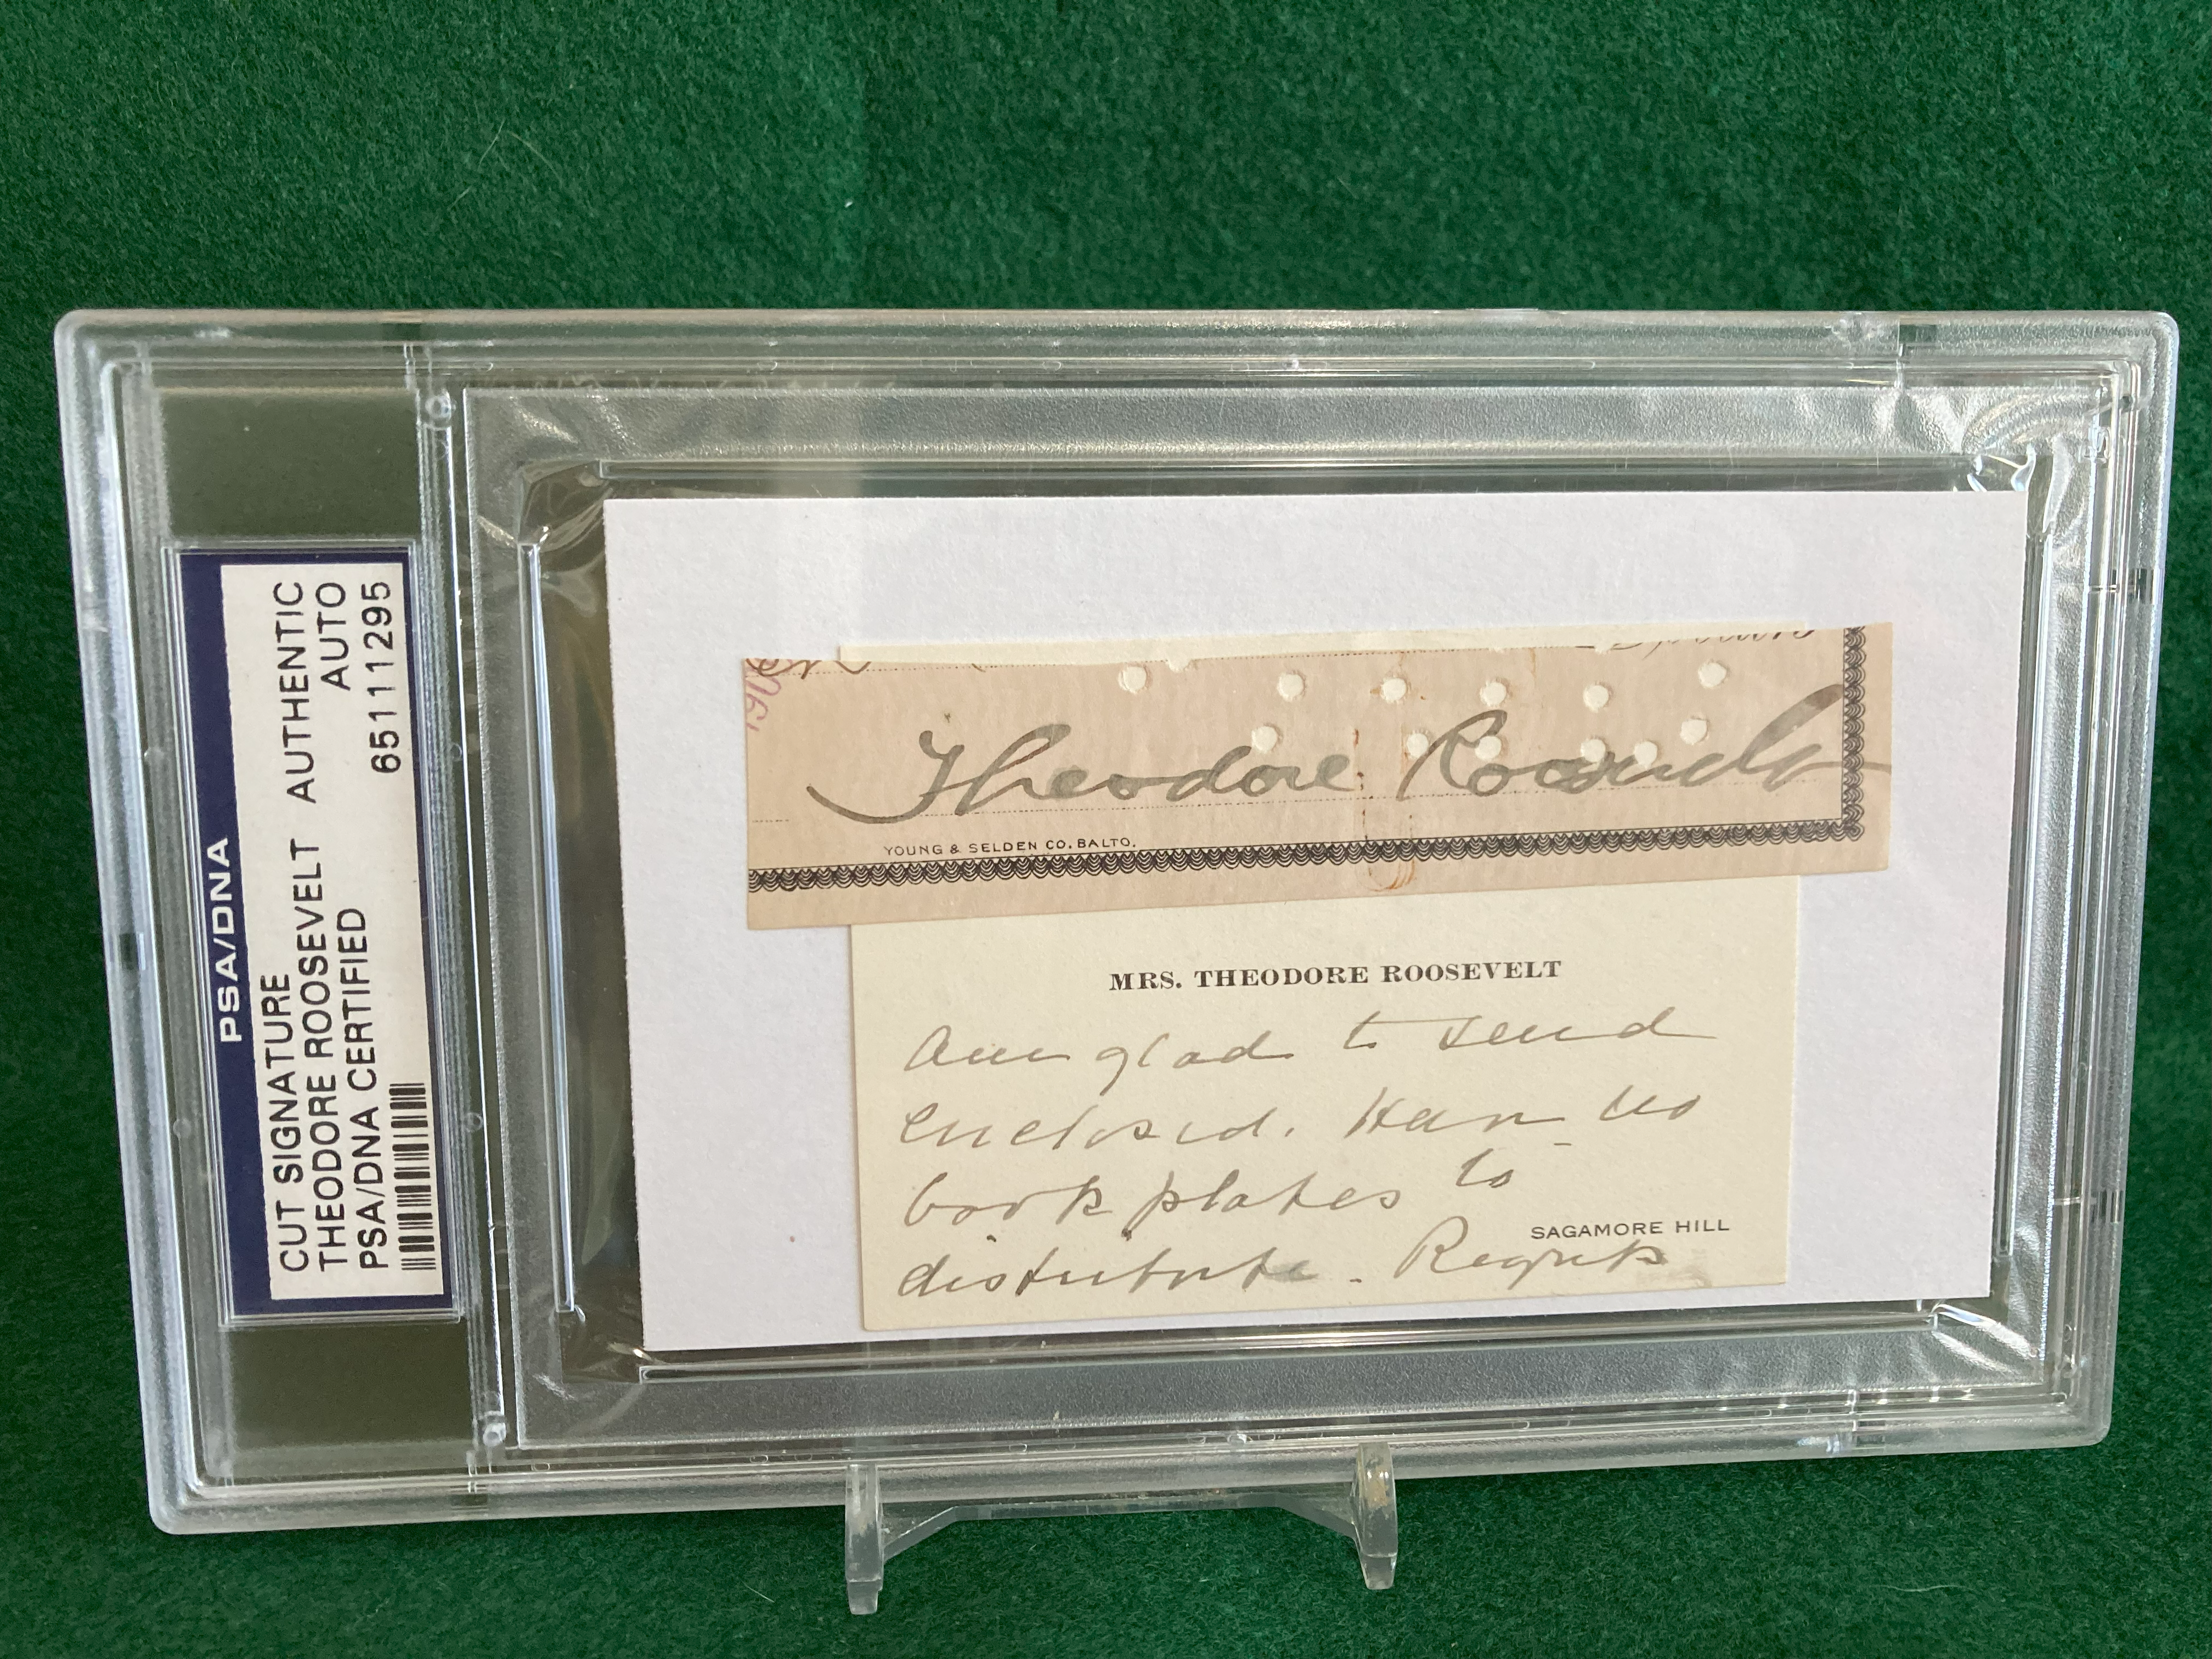 PSA/DNA
CUT SIGNATURE
THEODORE ROOSEVELT AUTHENTIC
PSA/DNA CERTIFIED AUTO
65111295
190
Theodore Roosevelt
YOUNG & SELDEN CO. BALTO.
MRS. THEODORE ROOSEVELT
Am glad to send
enclosed. Have no
book plates to
SAGAMORE HILL
distribute. Regrets